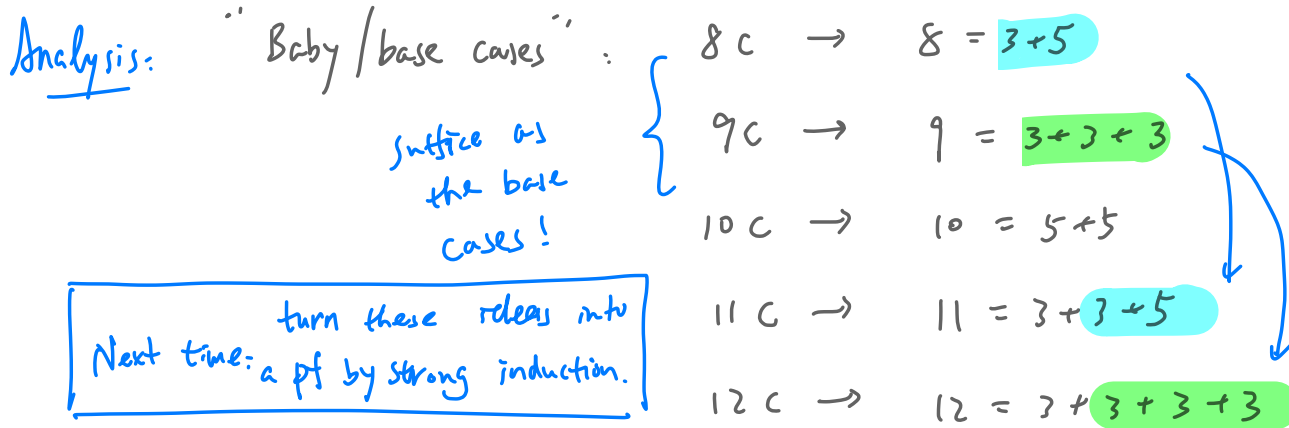 Analysis: "Baby/base cases":
8¢ → 8 = 3+5
suffice as
the base
cases!
9¢ → 9 = 3+3+3
10¢ → 10 = 5+5
11¢ → 11 = 3+3+5
12¢ → 12 = 3+3+3+3
Next time: turn these ideas into
a pf by strong induction.